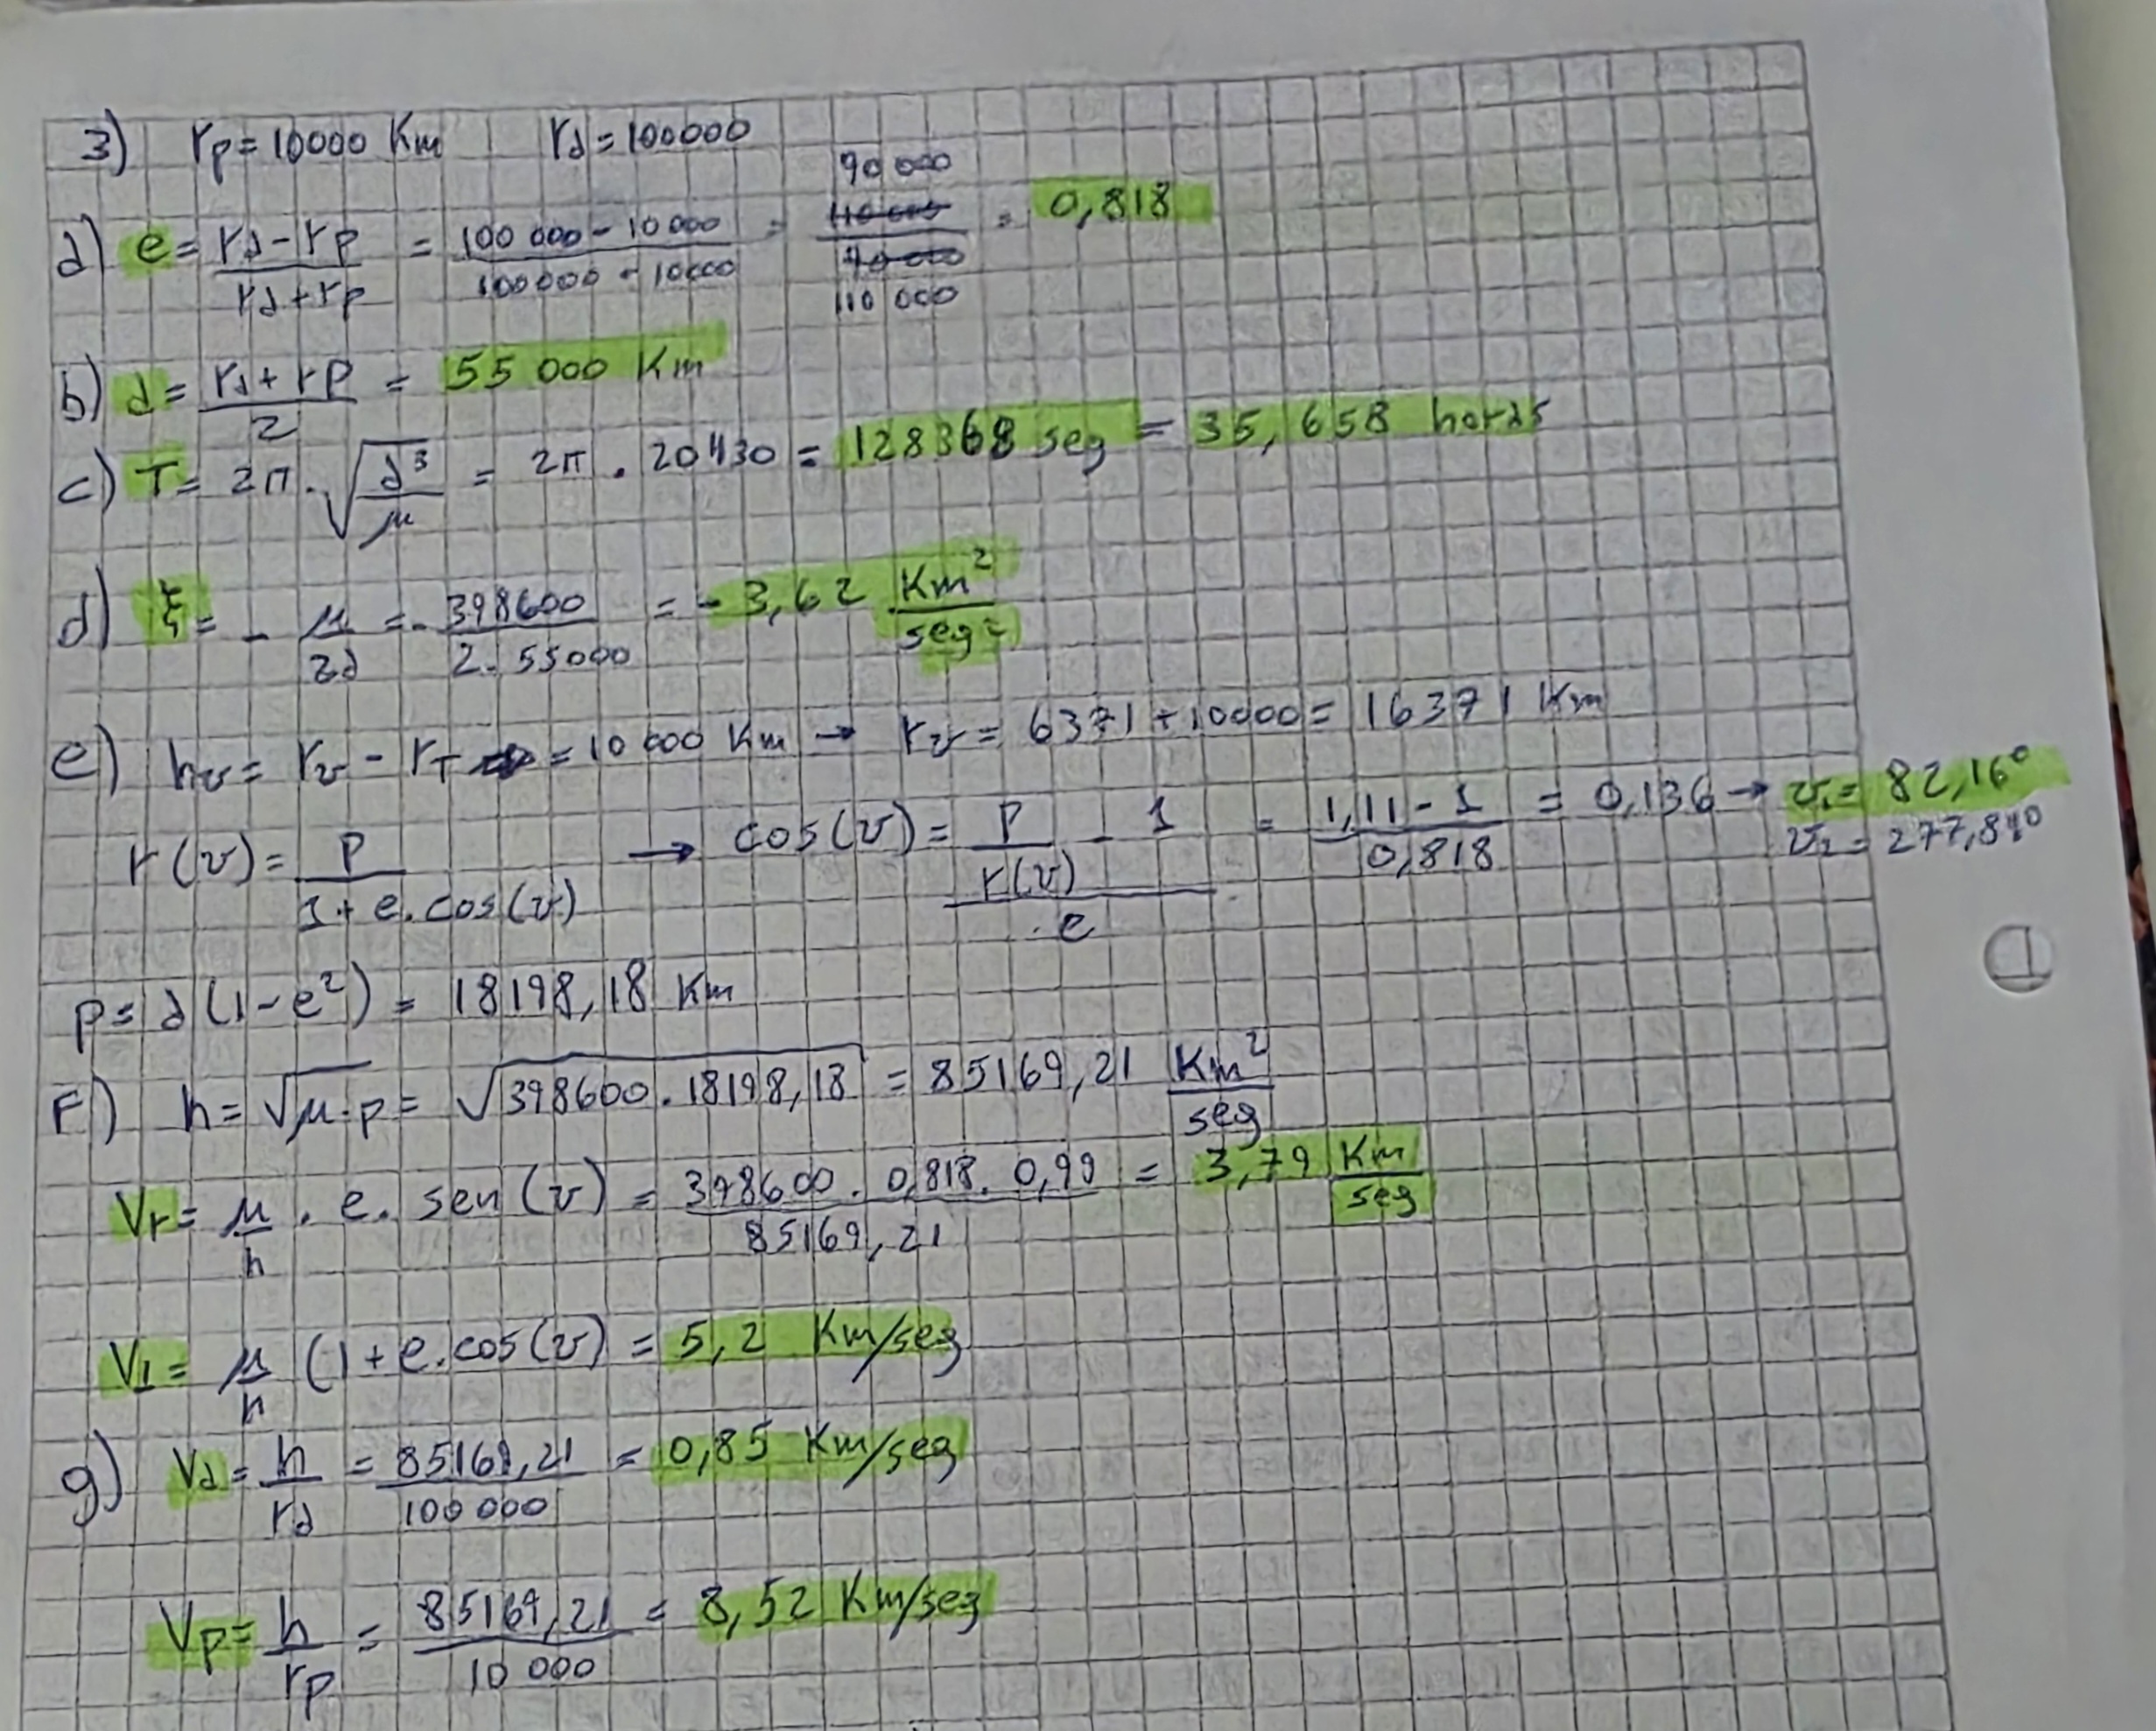 3) rp = 10000 Km ra = 100000
a) e = (ra - rp)/(ra + rp) = (100 000 - 10 000)/(100000 - 10000) = 90 000/110 000 = 0,818
b) a = (ra + rp)/2 = 55 000 Km
c) T = 2π · √(a³/μ) = 2π · 20430 = 128368 seg = 35,658 horas
d) ξ = - μ/2a = - 398600/(2 · 55000) = - 3,62 Km²/seg²
e) hv = rv - rT = 10 000 Km → rv = 6371 + 10000 = 16371 Km
r(v) = p/(1 + e · cos(v)) → cos(v) = (p/r(v) - 1)/e = (1,11 - 1)/0,818 = 0,136 → v₁ = 82,16°
v₂ = 277,84°
p = a(1 - e²) = 18198,18 Km
F) h = √(μ · p) = √(398600 · 18198,18) = 85169,21 Km²/seg
Vr = μ/h · e · sen(v) = (398600 · 0,818 · 0,99)/85169,21 = 3,79 Km/seg
V⊥ = μ/h (1 + e · cos(v) = 5,2 Km/seg
g) Va = h/ra = 85169,21/100 000 = 0,85 Km/seg
Vp = h/rp = 85169,21/10 000 = 8,52 Km/seg
1